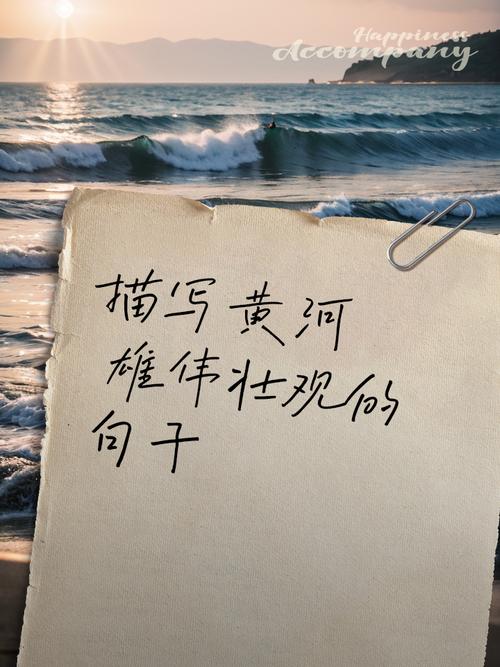 Happiness
Accompany
描写黄河
雄伟壮观的
句子